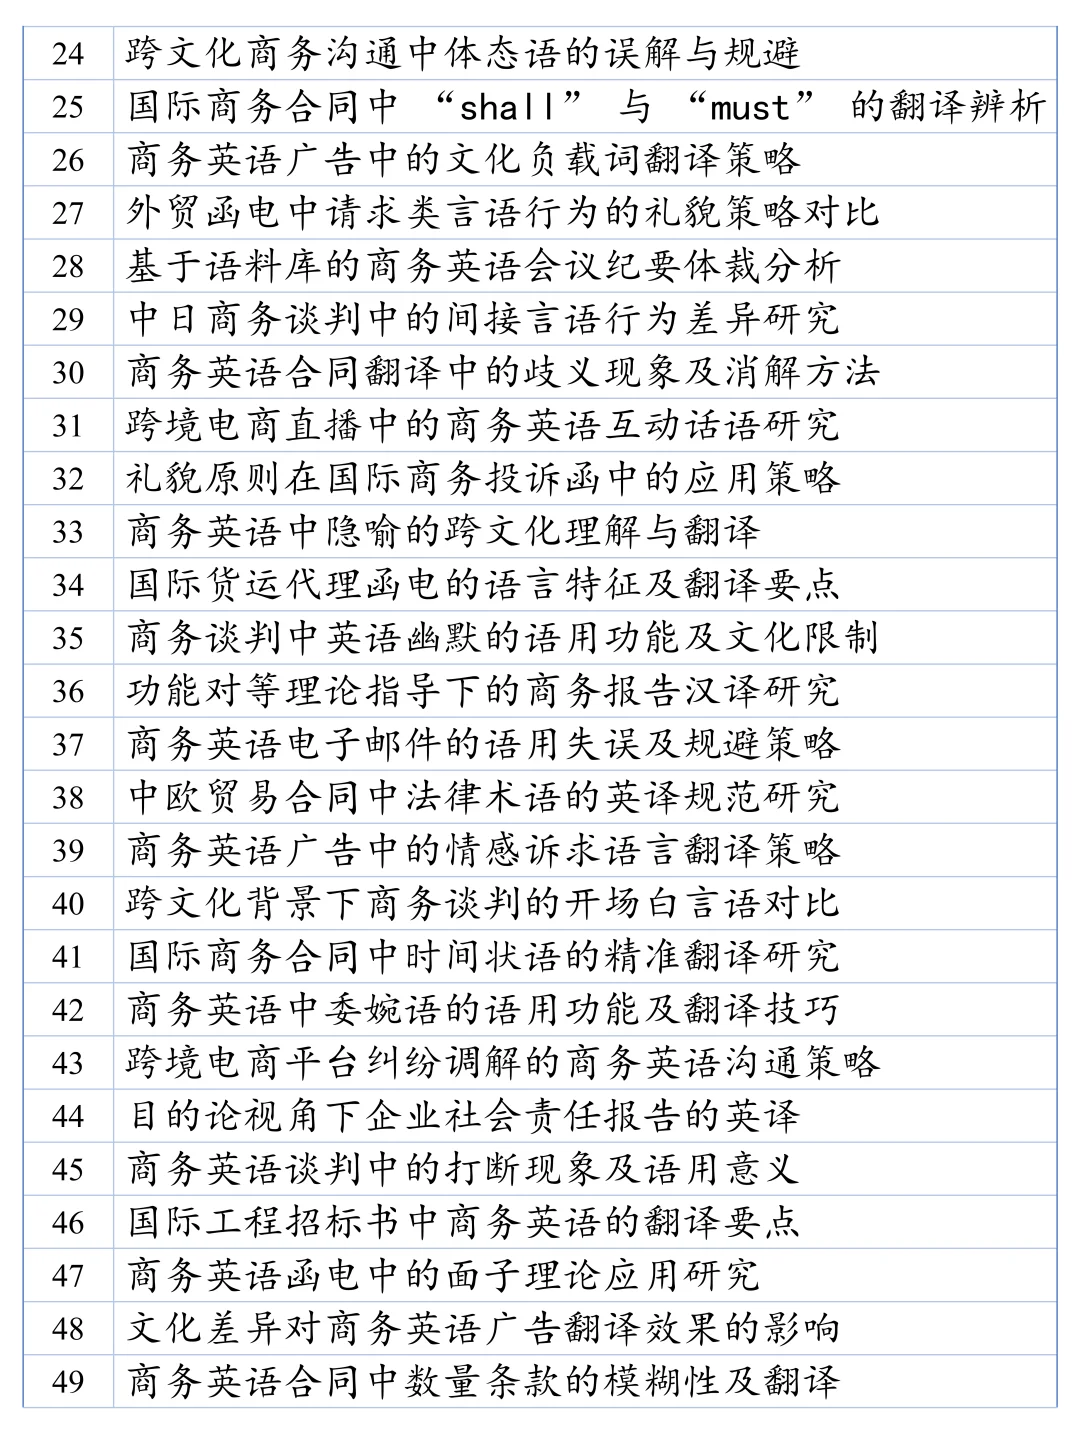 24 跨文化商务沟通中体态语的误解与规避
25 国际商务合同中 “shall” 与 “must” 的翻译辨析
26 商务英语广告中的文化负载词翻译策略
27 外贸函电中请求类言语行为的礼貌策略对比
28 基于语料库的商务英语会议纪要体裁分析
29 中日商务谈判中的间接言语行为差异研究
30 商务英语合同翻译中的歧义现象及消解方法
31 跨境电商直播中的商务英语互动话语研究
32 礼貌原则在国际商务投诉函中的应用策略
33 商务英语中隐喻的跨文化理解与翻译
34 国际货运代理函电的语言特征及翻译要点
35 商务谈判中英语幽默的语用功能及文化限制
36 功能对等理论指导下的商务报告汉译研究
37 商务英语电子邮件的语用失误及规避策略
38 中欧贸易合同中法律术语的英译规范研究
39 商务英语广告中的情感诉求语言翻译策略
40 跨文化背景下商务谈判的开场白言语对比
41 国际商务合同中时间状语的精准翻译研究
42 商务英语中委婉语的语用功能及翻译技巧
43 跨境电商平台纠纷调解的商务英语沟通策略
44 目的论视角下企业社会责任报告的英译
45 商务英语谈判中的打断现象及语用意义
46 国际工程招标书中商务英语的翻译要点
47 商务英语函电中的面子理论应用研究
48 文化差异对商务英语广告翻译效果的影响
49 商务英语合同中数量条款的模糊性及翻译